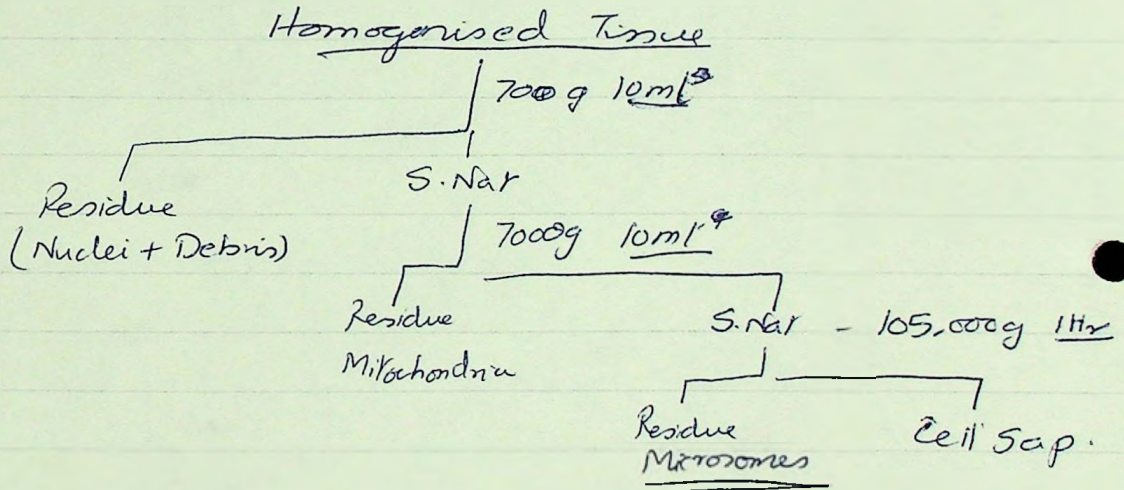 Homogenised Tissue
700g
S.Nat
Residue
(Nuclei + Debris)
7000g
Residue
Mitochondria
S.Nat - 105,000g 1Hr
Residue
Microsomes
Cell Sap.